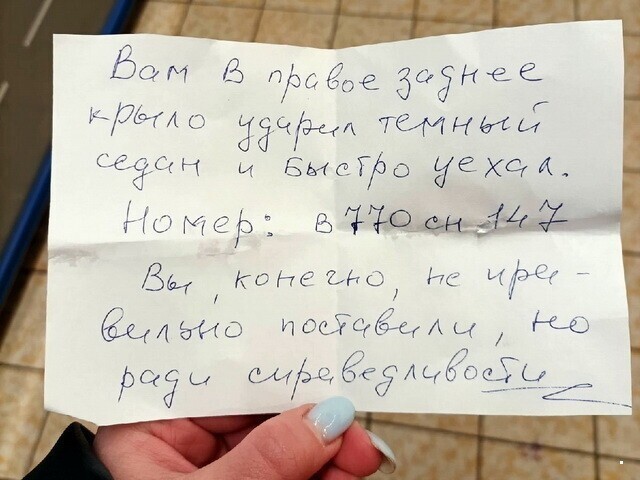 Вам в правое заднее
крыло ударил темный
седан и быстро уехал.
Номер: в 770 сн 147
Вы, конечно, не пра-
вильно поставили, но
ради справедливости